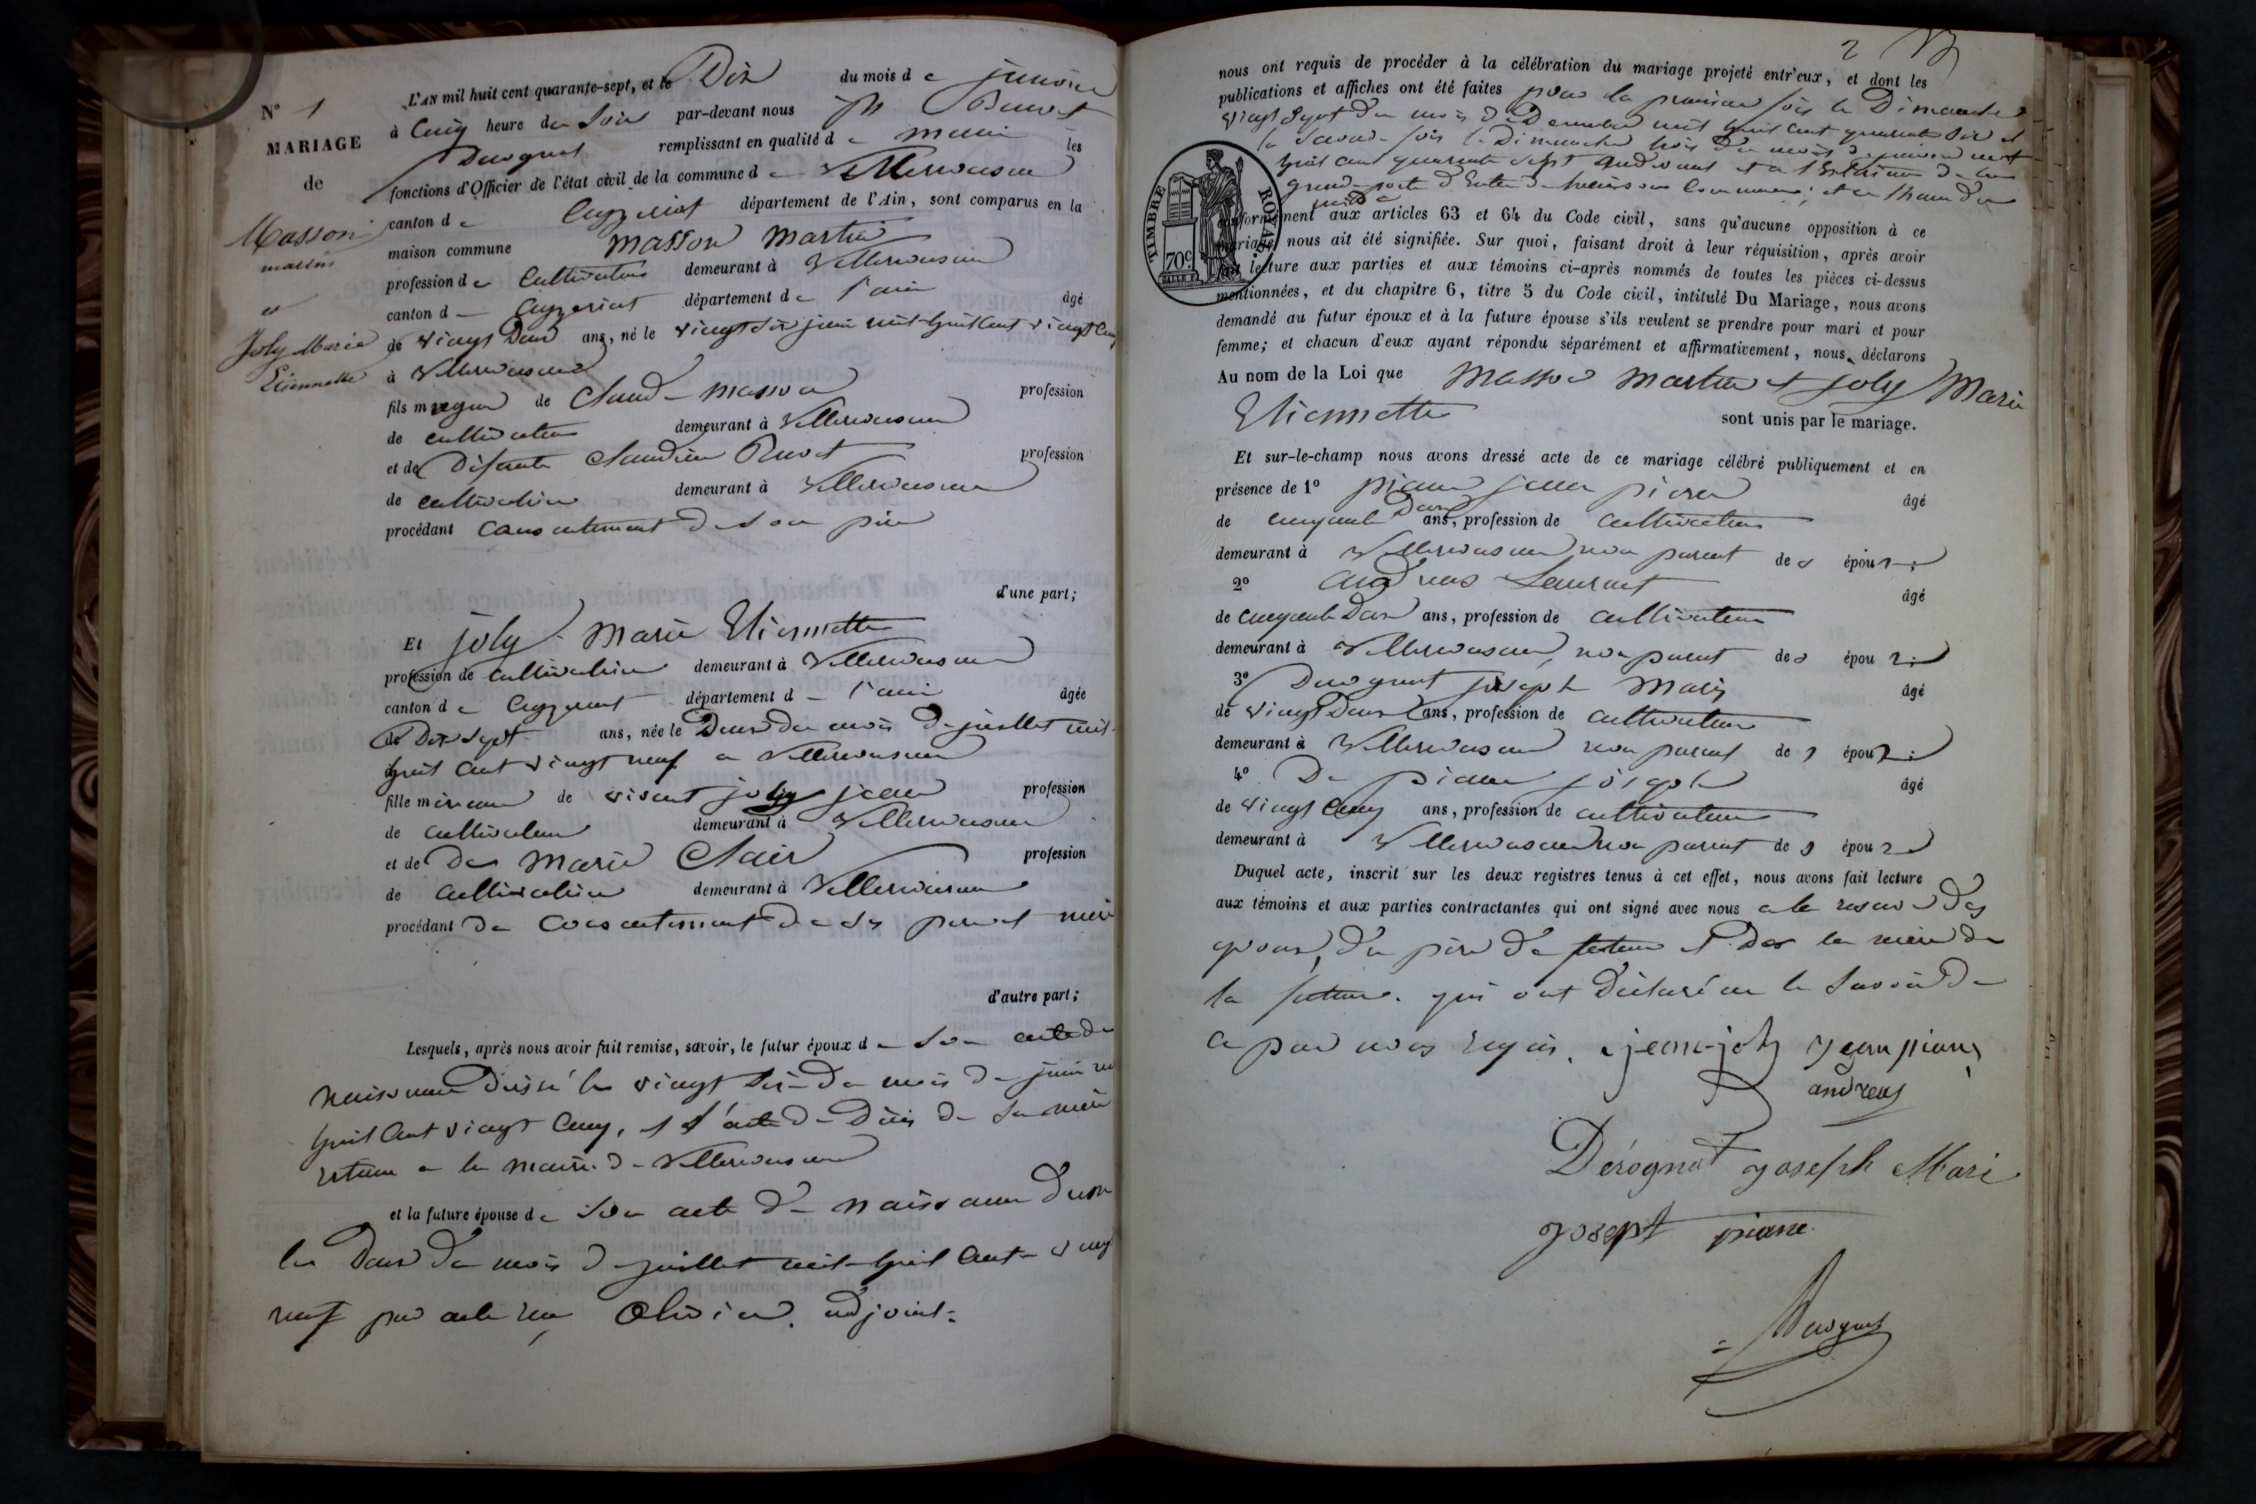 N° 1
MARIAGE
de
Masson
martin
et
Joly Marie
Etiennette
L'AN mil huit cent quarante-sept, et le Dix du mois de janvier
à Cinq heure du Soir par-devant nous
Derognat remplissant en qualité de maire les
fonctions d'Officier de l'état civil de la commune de Villereversure
canton de Ceyzeriat département de l'Ain, sont comparus en la
maison commune Masson Martin
profession de Cultivateur demeurant à Villereversure
canton de Ceyzeriat département de l'ain âgé
de vingt Deux ans, né le vingt six juin mil huit Cent vingt Cinq
à Villereversure
fils majeur de Claude masson profession
de cultivateur demeurant à Villereversure
et de Défunte Claudine profession
de cultivatrice demeurant à Villereversure
procédant consentement de son père
d'une part;
Et joly Marie Etiennette
profession de cultivatrice demeurant à Villereversure
canton de Ceyzeriat département de l'ain âgée
de Dix sept ans, née le Deux du mois de juillet mil
huit Cent vingt neuf a Villereversure
fille mineure de vivant joly jean profession
de cultivateur demeurant à Villereversure
et de De Marie Clair profession
de cultivatrice demeurant à Villereversure
procédant Du Consentement de ses père et mère
d'autre part;
Lesquels, après nous avoir fait remise, savoir, le futur époux de Son acte de
naissance Dressé le vingt six du mois de juin mil
huit Cent vingt Cinq, et l'acte de Décès de Sa mère
retenu a la mairie de Villereversure
et la future épouse de Son acte de naissance Dressé
le Deux du mois de juillet mil huit Cent vingt
neuf par acte reçu Olivier adjoint.
2
nous ont requis de procéder à la célébration du mariage projeté entr'eux, et dont les
publications et affiches ont été faites pour la première fois le Dimanche
vingt Sept du mois de Décembre mil huit cent quarante six et
la Seconde fois le Dimanche trois du mois de janvier mil
huit cent quarante Sept et a l'Extérieur de la
grand porte d'Entrée de la maison Commune; et a l'heure de
midi
conformément aux articles 63 et 64 du Code civil, sans qu'aucune opposition à ce
mariage nous ait été signifiée. Sur quoi, faisant droit à leur réquisition, après avoir
fait lecture aux parties et aux témoins ci-après nommés de toutes les pièces ci-dessus
mentionnées, et du chapitre 6, titre 5 du Code civil, intitulé Du Mariage, nous avons
demandé au futur époux et à la future épouse s'ils veulent se prendre pour mari et pour
femme; et chacun d'eux ayant répondu séparément et affirmativement, nous déclarons
Au nom de la Loi que Masson Martin et joly Marie
Etiennette sont unis par le mariage.
Et sur-le-champ nous avons dressé acte de ce mariage célébré publiquement et en
présence de 1° jean âgé
de cinquante Deux ans, profession de cultivateur
demeurant à Villereversure non parent des époux;
2° andreas Laurent âgé
de cinquante Deux ans, profession de cultivateur
demeurant à Villereversure, non parent des époux;
3° Derognat joseph Marie âgé
de vingt Deux ans, profession de cultivateur
demeurant à Villereversure non parent des époux;
4° joseph âgé
de vingt Cinq ans, profession de cultivateur
demeurant à Villereversure non parent des époux
Duquel acte, inscrit sur les deux registres tenus à cet effet, nous avons fait lecture
aux témoins et aux parties contractantes qui ont signé avec nous a la reserve Des
epoux, Du père Du futur et De la mère De
la future. qui ont Déclaré ne le Savoir De
ce par nous requis. jean joly jean
andreas
Dérognat joseph Mari
josept
Derognat
TIMBRE ROYAL
70c